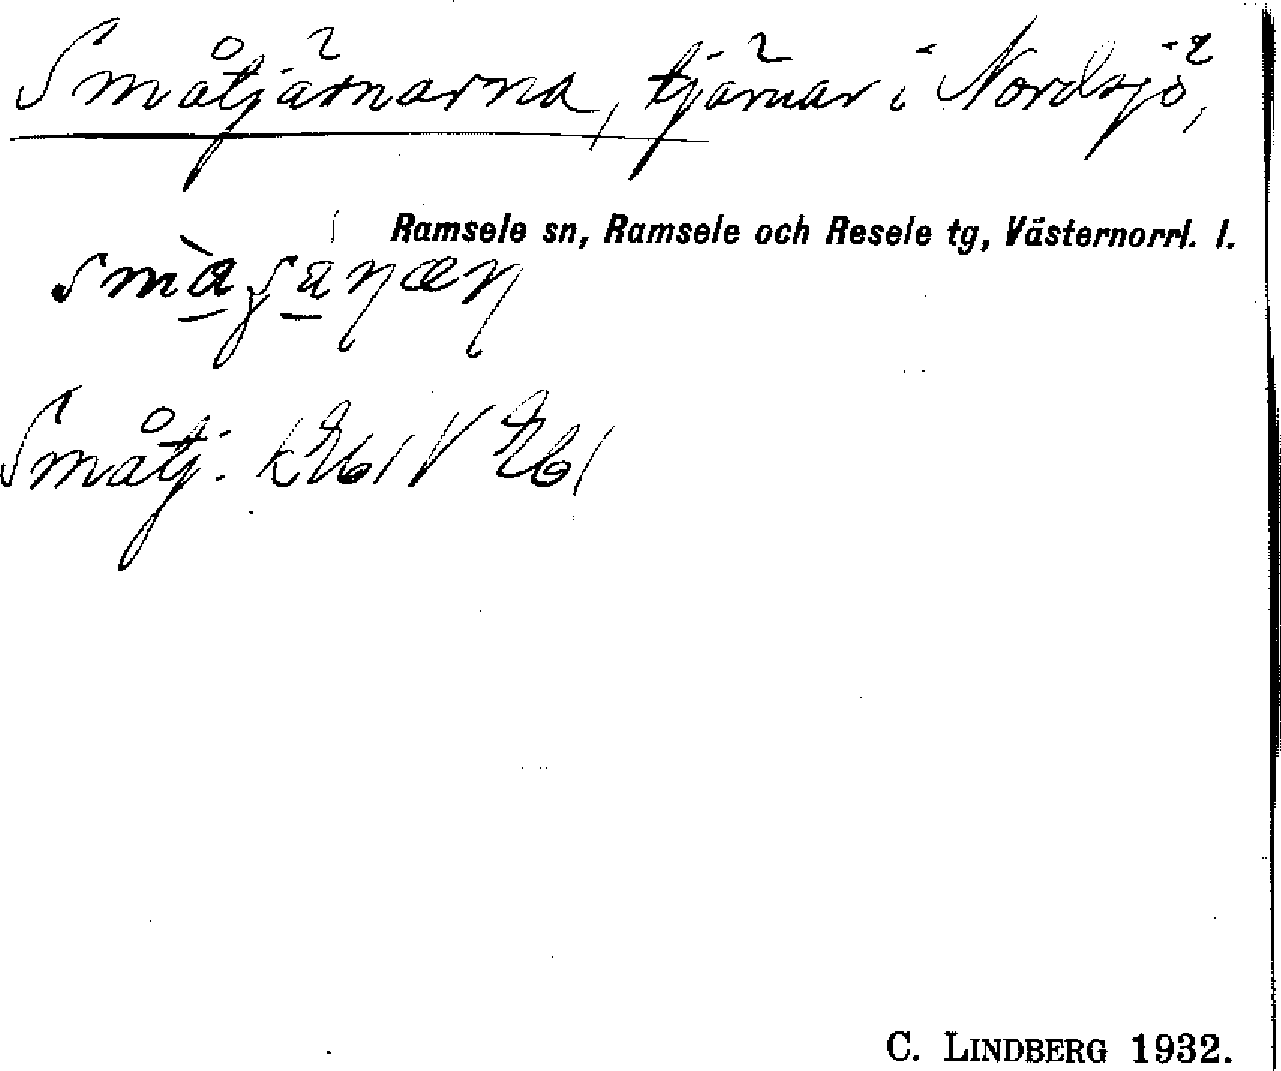 Småtjärnarna, tjärnar i Nordsjö,
Ramsele sn, Ramsele och Resele tg, Västernorrl. l.
Småtj.
C. LINDBERG 1932.